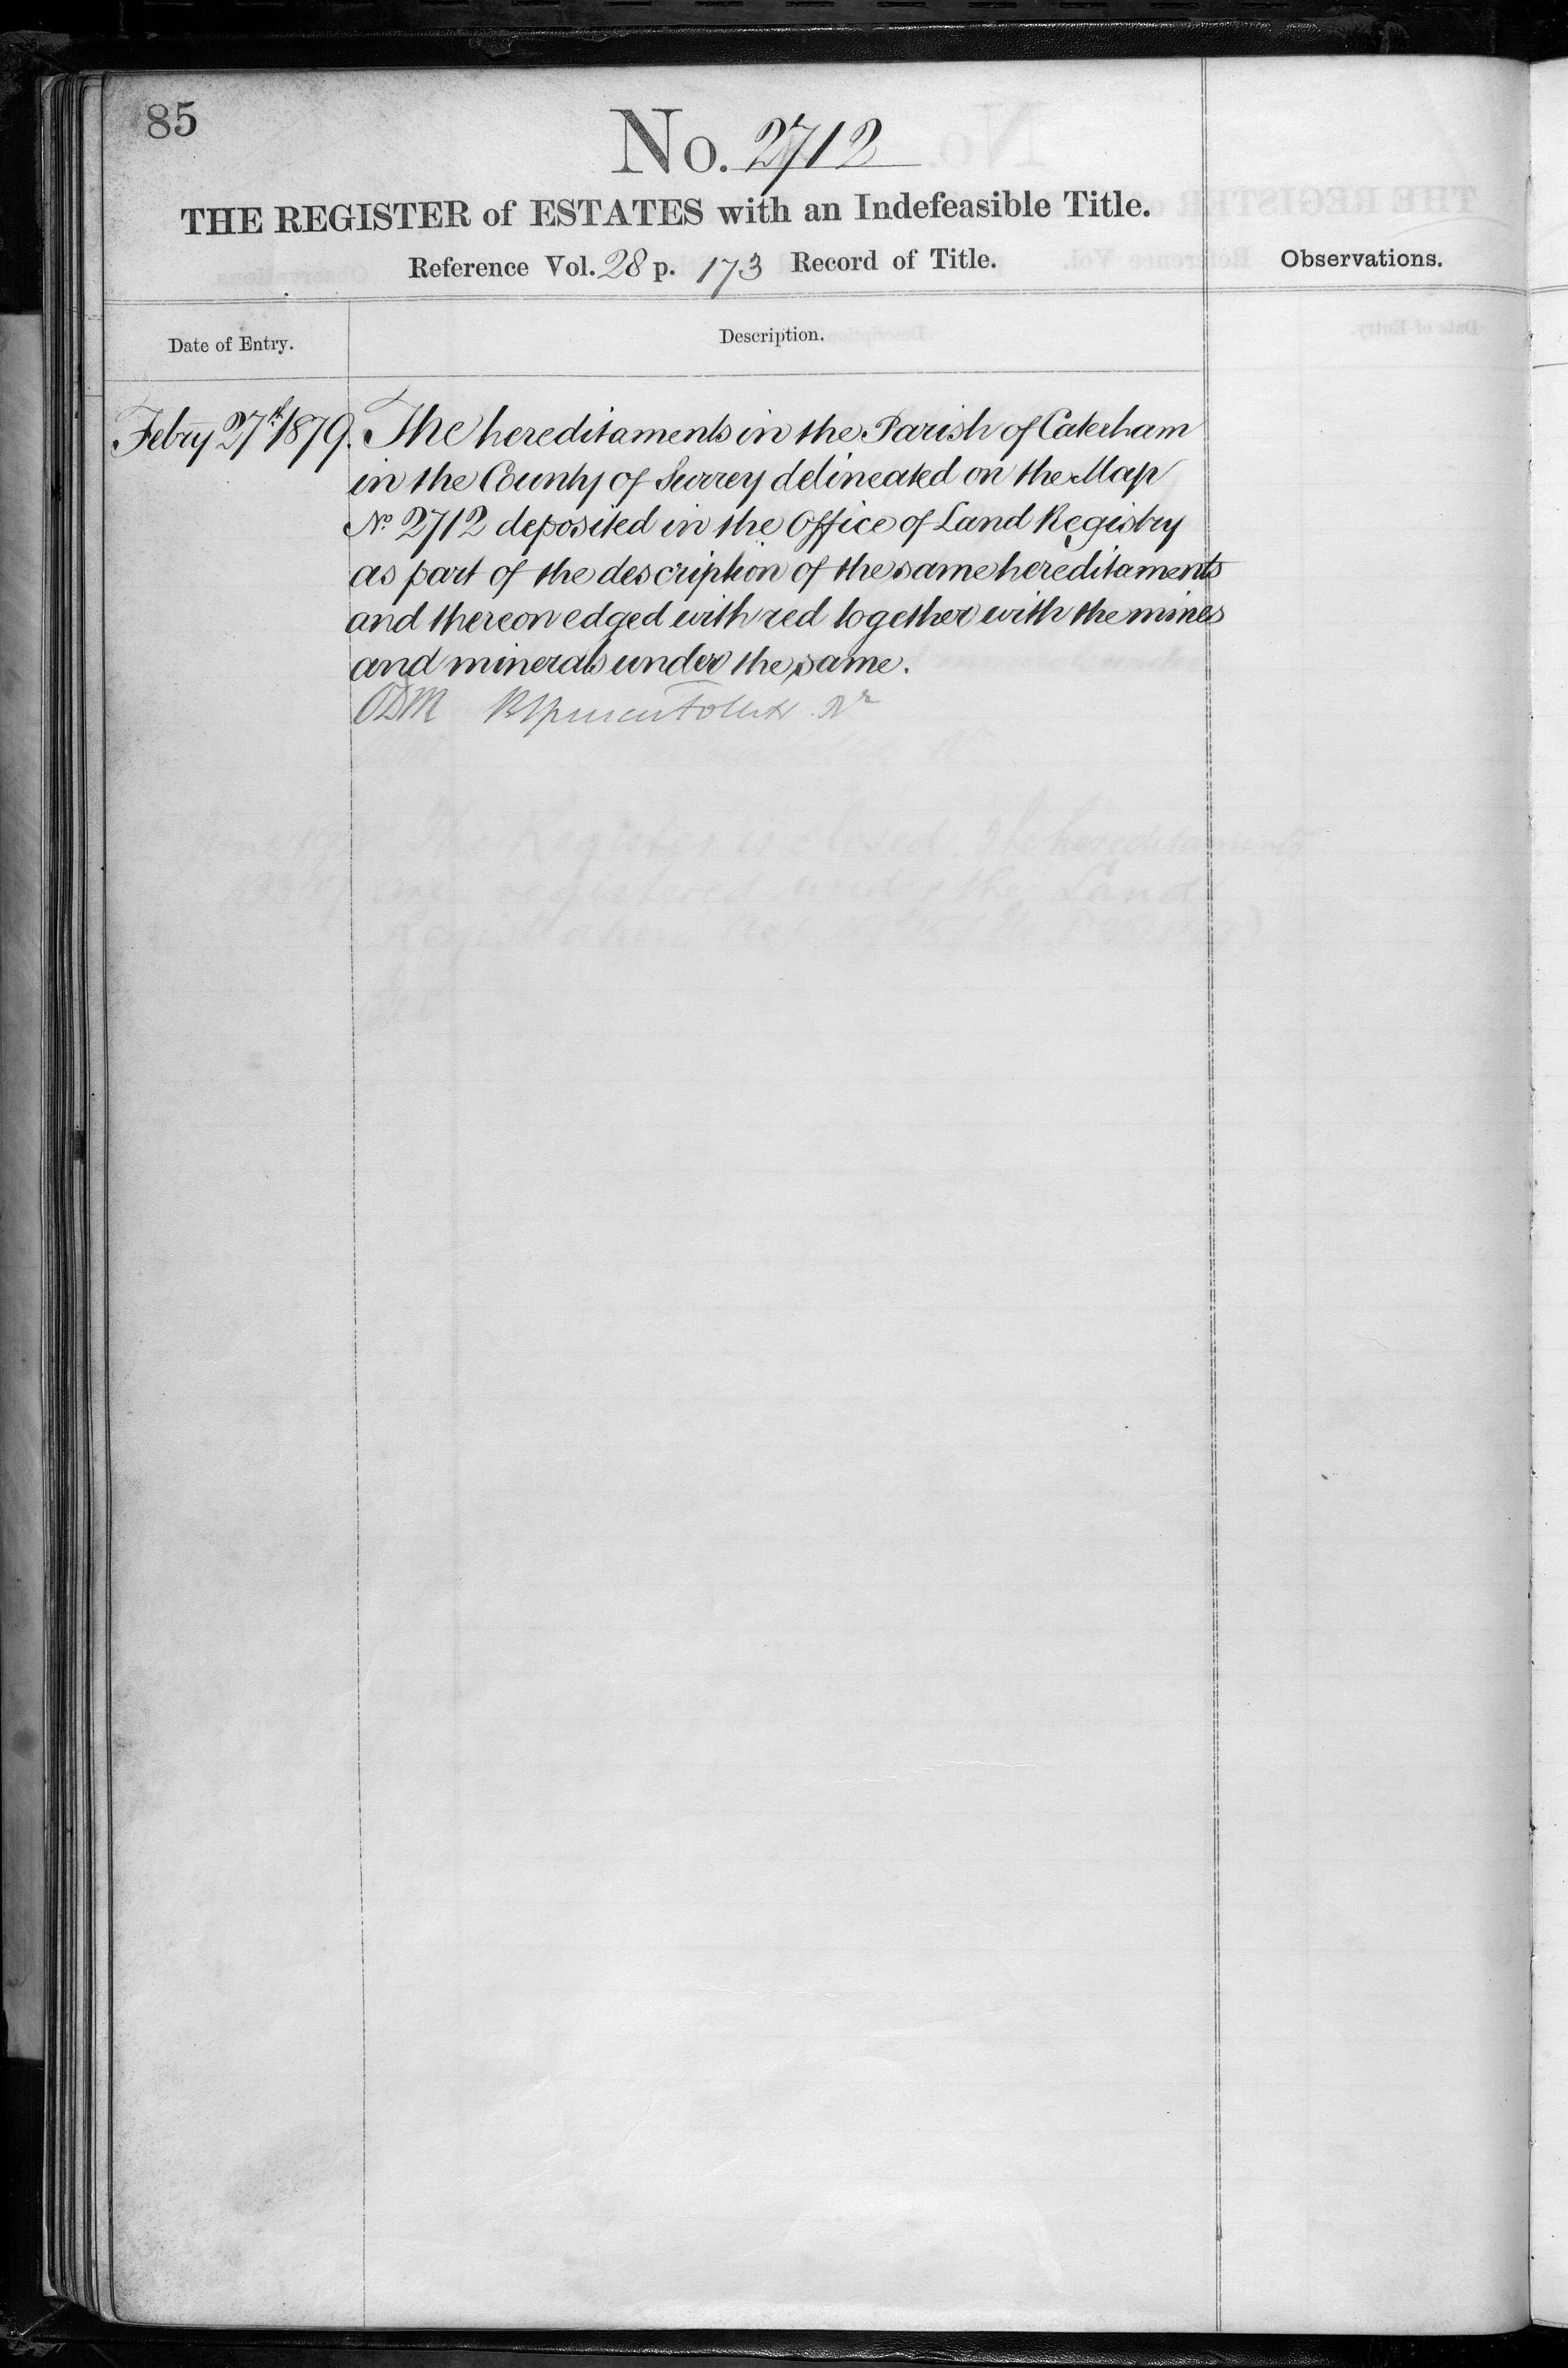 85
No. 2712
THE REGISTER of ESTATES with an Indefeasible Title.
Reference Vol. 28 p. 173 Record of Title.
Observations.
Date of Entry.
Description.
Febry 27th 1879. The hereditaments in the Parish of Caterham
in the County of Surrey delineated on the Map
No 2712 deposited in the Office of Land Registry
as part of the description of the same hereditaments
and thereon edged with red together with the mines
and minerals under the same.
The Register is closed. The hereditaments
are registered under the Land